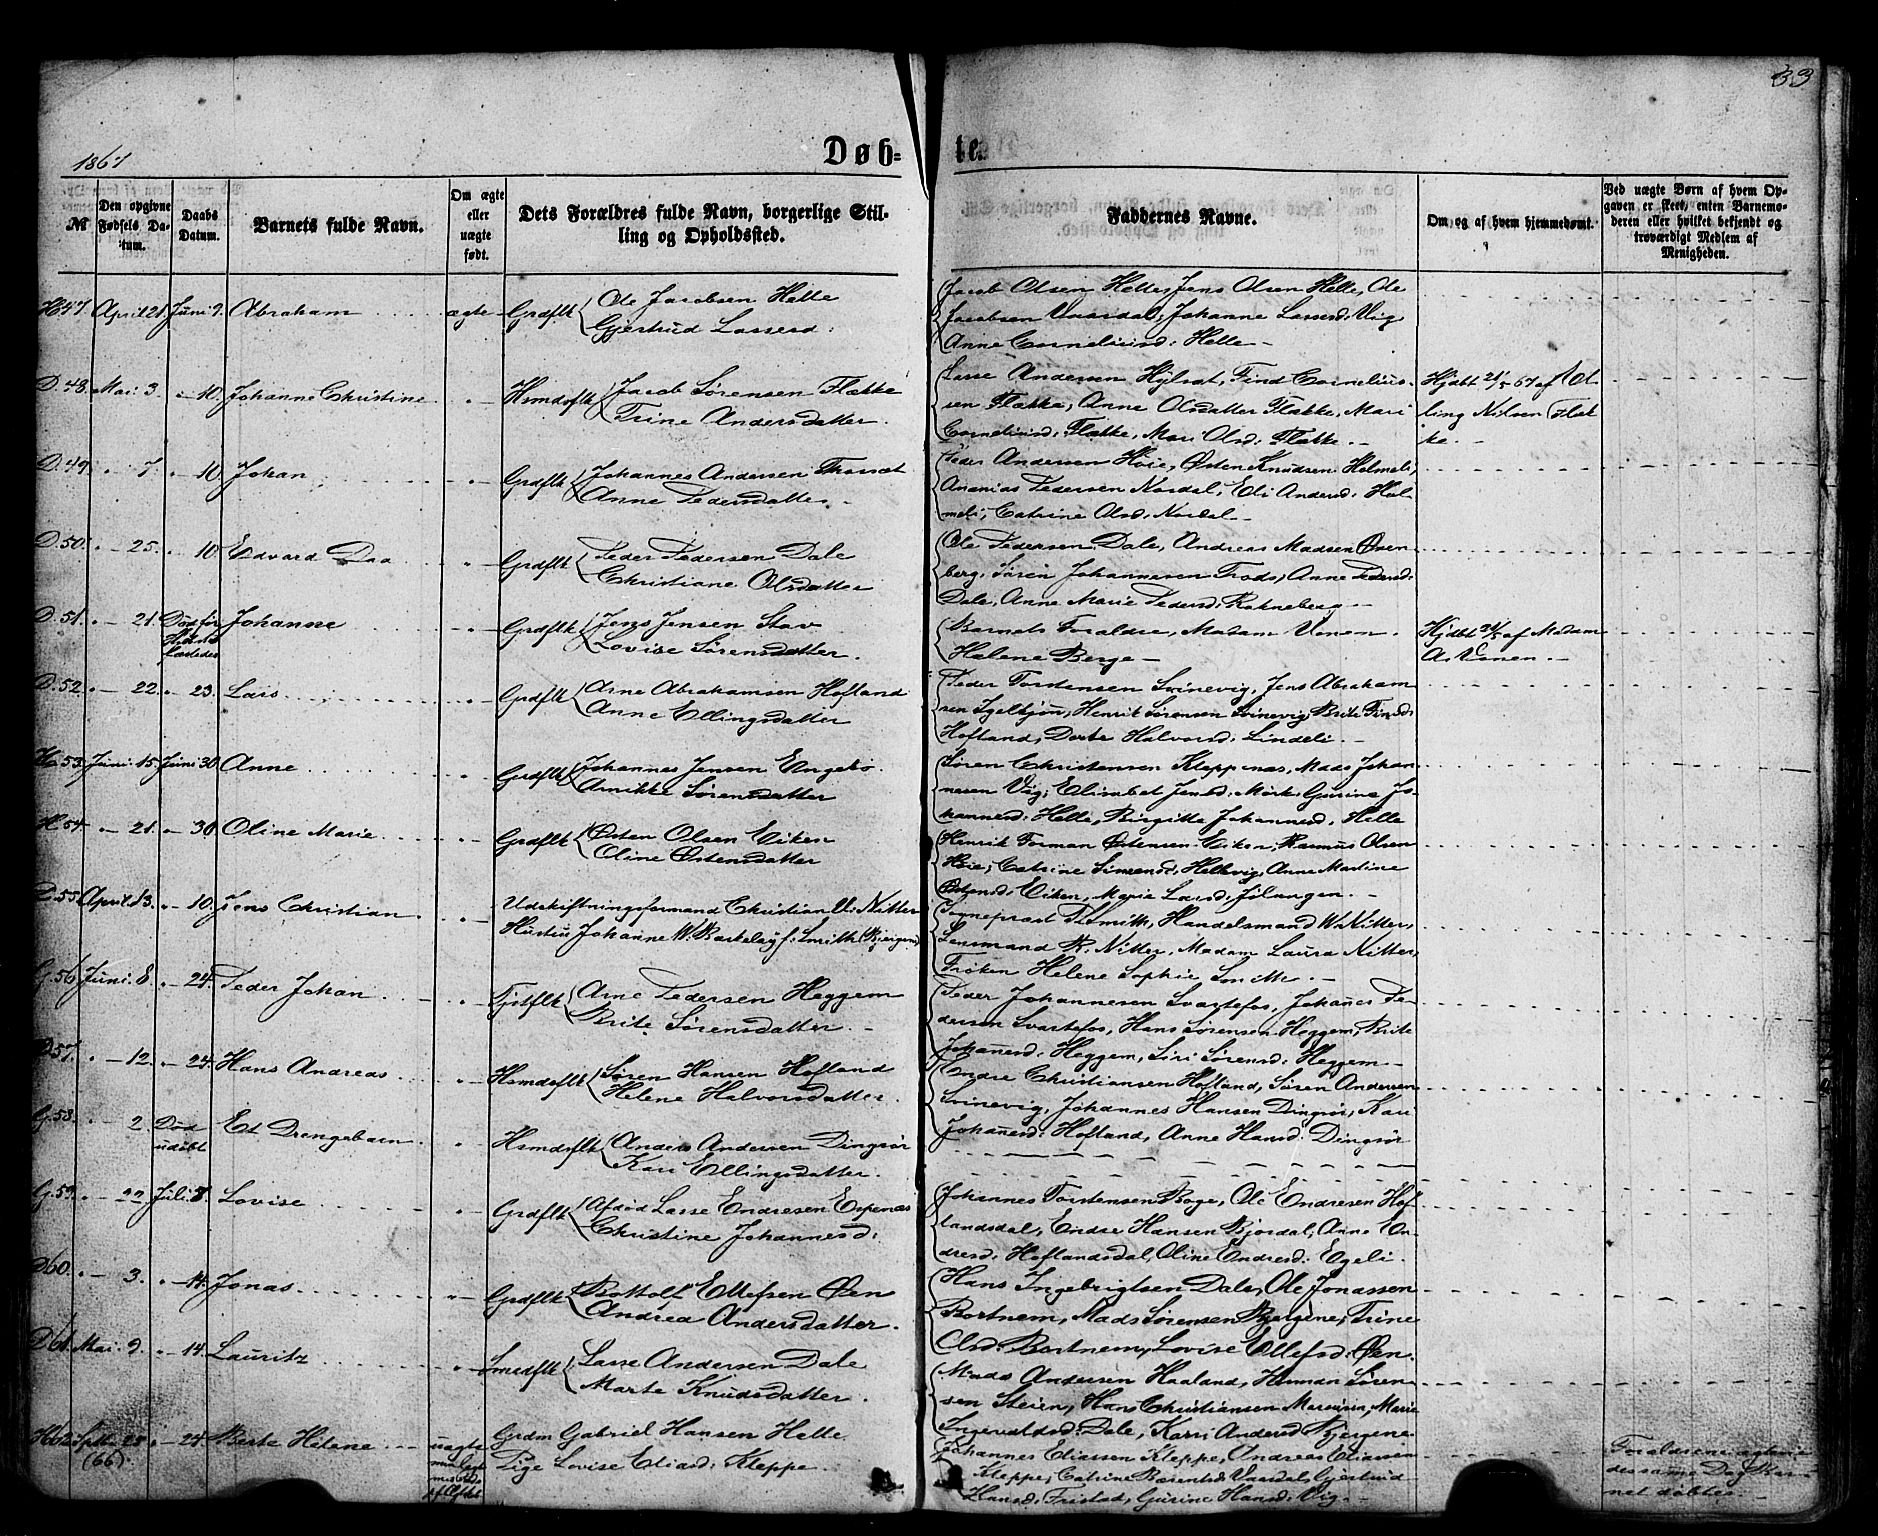 33
1867
Døb=
te.
№
Den opgivne Fødsels Datum.
Daabs Datum.
Barnets fulde Navn.
Om ægte eller uægte født.
Dets Forældres fulde Navn, borgerlige Stilling og Opholdssted.
Faddernes Navne.
Om, og af hvem hjemmedøbt.
Ved uægte Børn af hvem Opgaven er skeet, enten Barnemoderen eller hvilket bekjendt og troværdigt Medlem af Menigheden.
H 47. April 21. Juni 9. Abraham ægte Grdflk Ole Jacobsen Helle
Gjertrud Lassesd:
Jacob Olsen Helle, Jens Olsen Helle, Ole
Jacobsen Vaardal, Johanne Lassesd: Vig
Anne Corneliusd: Helle
D. 48. Mai 3 " 10. Johanne Christine " Hsmdsflk Jacob Sørensen Flække
Trine Andersdatter.
Lasse Andersen Hylsæt, Find Cornelius-
sen Flække, Anne Olsdatter Flække, Mari
Corneliusd: Flække, Mari Olsd: Flække.
Hjdbt 21/5 67 af
ling Nilsen Flæk
ke.
D. 49. " 7. " 10. Johan " Grdflk Johannes Andersen
Anne Pedersdatter
Peder Andersen Høie, Østen Knudsen Holmeli,
Ananias Pedersen Nordal, Eli Andersd: Hol-
meli, Catrine Olsd: Nordal
D. 50. " 25. " 10. Edvard Daa " Grdflk Peder Pedersen Dale
Christiane Olsdatter
Ole Pedersen Dale, Andreas Madsen Øren-
berg, Søren Johannesen Trods, Anne Pedersd:
Dale, Anne Marie Pedersd: Rakneberg
D. 51. " 21. Død før Johanne " Grdflk Jens Jensen Stav
Lovise Sørensdatter.
Barnets Forældre, Madam Vonen
Helene Berge
Hjdbt 21/5 af Madam
A. Vonen.
D. 52. " 22. " 23. Lars " Grdflk Arne Abrahamsen Hofland
Anne Ellingsdatter
Peder Torstensen Svinevig, Jens Abraham
sen Igelkjøn, Henrik Sørensen Svinevig, Brite Finsd:
Hofland, Dorte Halvorsd: Lindeli.
H 53. Juni 15. Juni 30. Anne " Grdflk Johannes Jensen Engebø
Annikke Sørensdatter
Søren Christensen Kleppenæs, Mads Johan-
nesen Vig, Elisabet Jensd: Mørk, Gurine Jo-
hannesd: Helle, Birgitte Johannesd: Helle
H 54. " 21. " 30. Oline Marie " Grdflk Østen Olsen Eiken
Oline Østensdatter
Henrik Forman Østensen Eiken, Rasmus Olsen
Høie, Catrine Simensd: Hellevig, Anne Martine
Østensd: Eiken, Marie Larsd:
D. 55. April 13. " 10. Jens Christian " Udskiftningsformand Christian U. Nitter
Hustru Johanne W. Barkeley f: Smith (Bjergene)
Sogneprest Smith, Handelsmand W. Nitter,
Lensmand R. Nitter, Madam Laura Nitter,
Frøken Helene Sophie Smith.
G. 56. Juni 8 " 24. Peder Johan " Tjstflk Arne Pedersen Heggem
Brite Sørensdatter.
Peder Johannesen Svartefos, Johanes Pe-
dersen Svartefos, Hans Sørensen Heggem, Brite
Johanesd: Heggem, Siri Sørensd: Heggem
D. 57. " 12. " 24. Hans Andreas " Hsmdsflk Søren Hansen Hofland
Helene Halvorsdatter.
Endre Christiansen Hofland, Søren Andersen
Svinevig, Johannes Hansen Dingsør, Kari
Johanesd: Hofland, Anne Hansd: Dingsør
G. 58. " 2. Død udøbt Et Drengebarn " Hsmdsflk Anders Andersen Dingsør
Kari Ellingsdatter.
G. 59. " 22. Juli 7. Lovise " Grdflk Afdød Lasse Endresen Espenæs
Christine Johannesd:
Johannes Torstensen Boge, Ole Endresen Hof-
landsdal, Endre Hansen Bjordal, Anne En-
dresd: Hoflandsdal, Oline Endresd: Egeli.
D 60. " 3. " 14. Jonas " Grdflk Bottolf Ellefsen Øen
Andrea Andersdatter.
Hans Ingebrigtsen Dale, Ole Jonassen
Bortnem, Mads Sørensen Bjergene, Trine
Olsd: Bortnem, Lovise Ellefsd: Øen.
D 61. Mai 9. " 14. Lauritz " Smedflk Lasse Andersen Dale
Marte Knudsdatter.
Mads Andersen Haaland, Herman Søren-
sen Steien, Hans Christiansen, Marie
Ingevaldsd: Dale, Karri Andersd: Bjergene
H 62. Septbr 28 " 24. Berte Helene uægte Grdm Gabriel Hansen Helle
(66). Pige Lovise Eliasd: Kleppe
Johannes Eliassen Kleppe, Andreas Eliassen
Kleppe, Catrine Bærentsd: Vaardal, Gjertrud
Hansd: Fristad, Gurine Hansd: Vig
Forældrene
samme Dag Bar-
net døbtes.